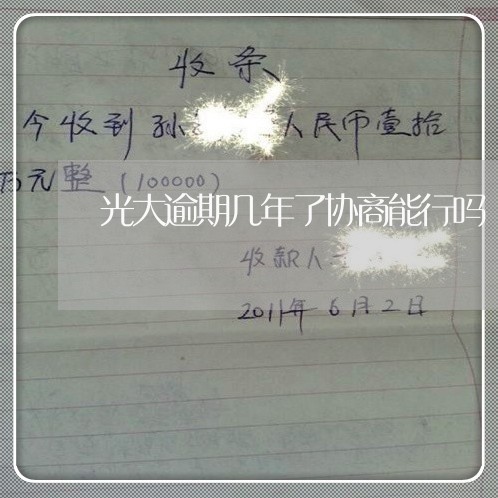 收条
今收到孙 人民币壹拾
万元整(100000)
光大逾期几年了协商能行吗
收款人
2011年6月2日